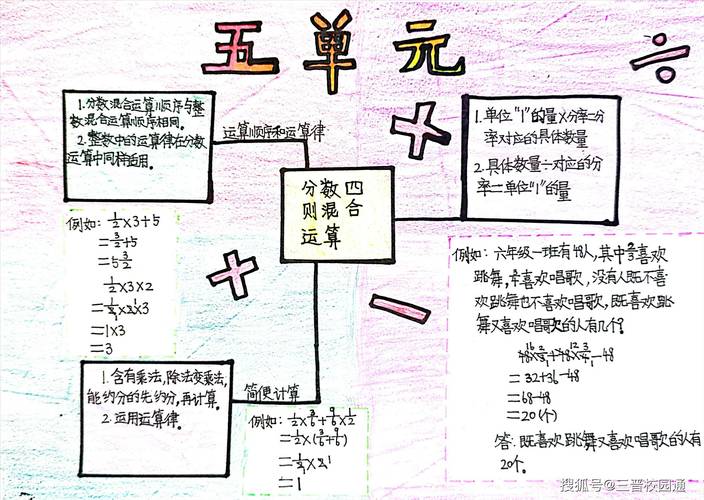 五单元
1.分数混合运算顺序与整
数混合运算顺序相同。
2.整数中的运算律在分数
运算中同样适用。
运算顺序和运算律
1.单位"1"的量×分率=分
率对应的具体数量
2.具体数量÷对应的分
率=单位"1"的量
分数四
则混合
运算
例如: 1/2×3+5
=3/2+5
=5 3/2
1/2×3×2
=1/2×2×3
=1×3
=3
例如:六年级一班有48人,其中喜欢
跳舞,喜欢唱歌,没有人既不喜
欢跳舞也不喜欢唱歌,既喜欢跳
舞又喜欢唱歌的人有几个?
=32+36-48
=68-48
=20(个)
答:既喜欢跳舞又喜欢唱歌的人有
20个。
1.含有乘法,除法变乘法,
能约分的先约分,再计算。
2.运用运算律。
简便计算
例如: 1/2×3/6+9/6×1/2
=1/2×(3/6+9/6)
=1/2×2
=1
搜狐号@三晋校园通